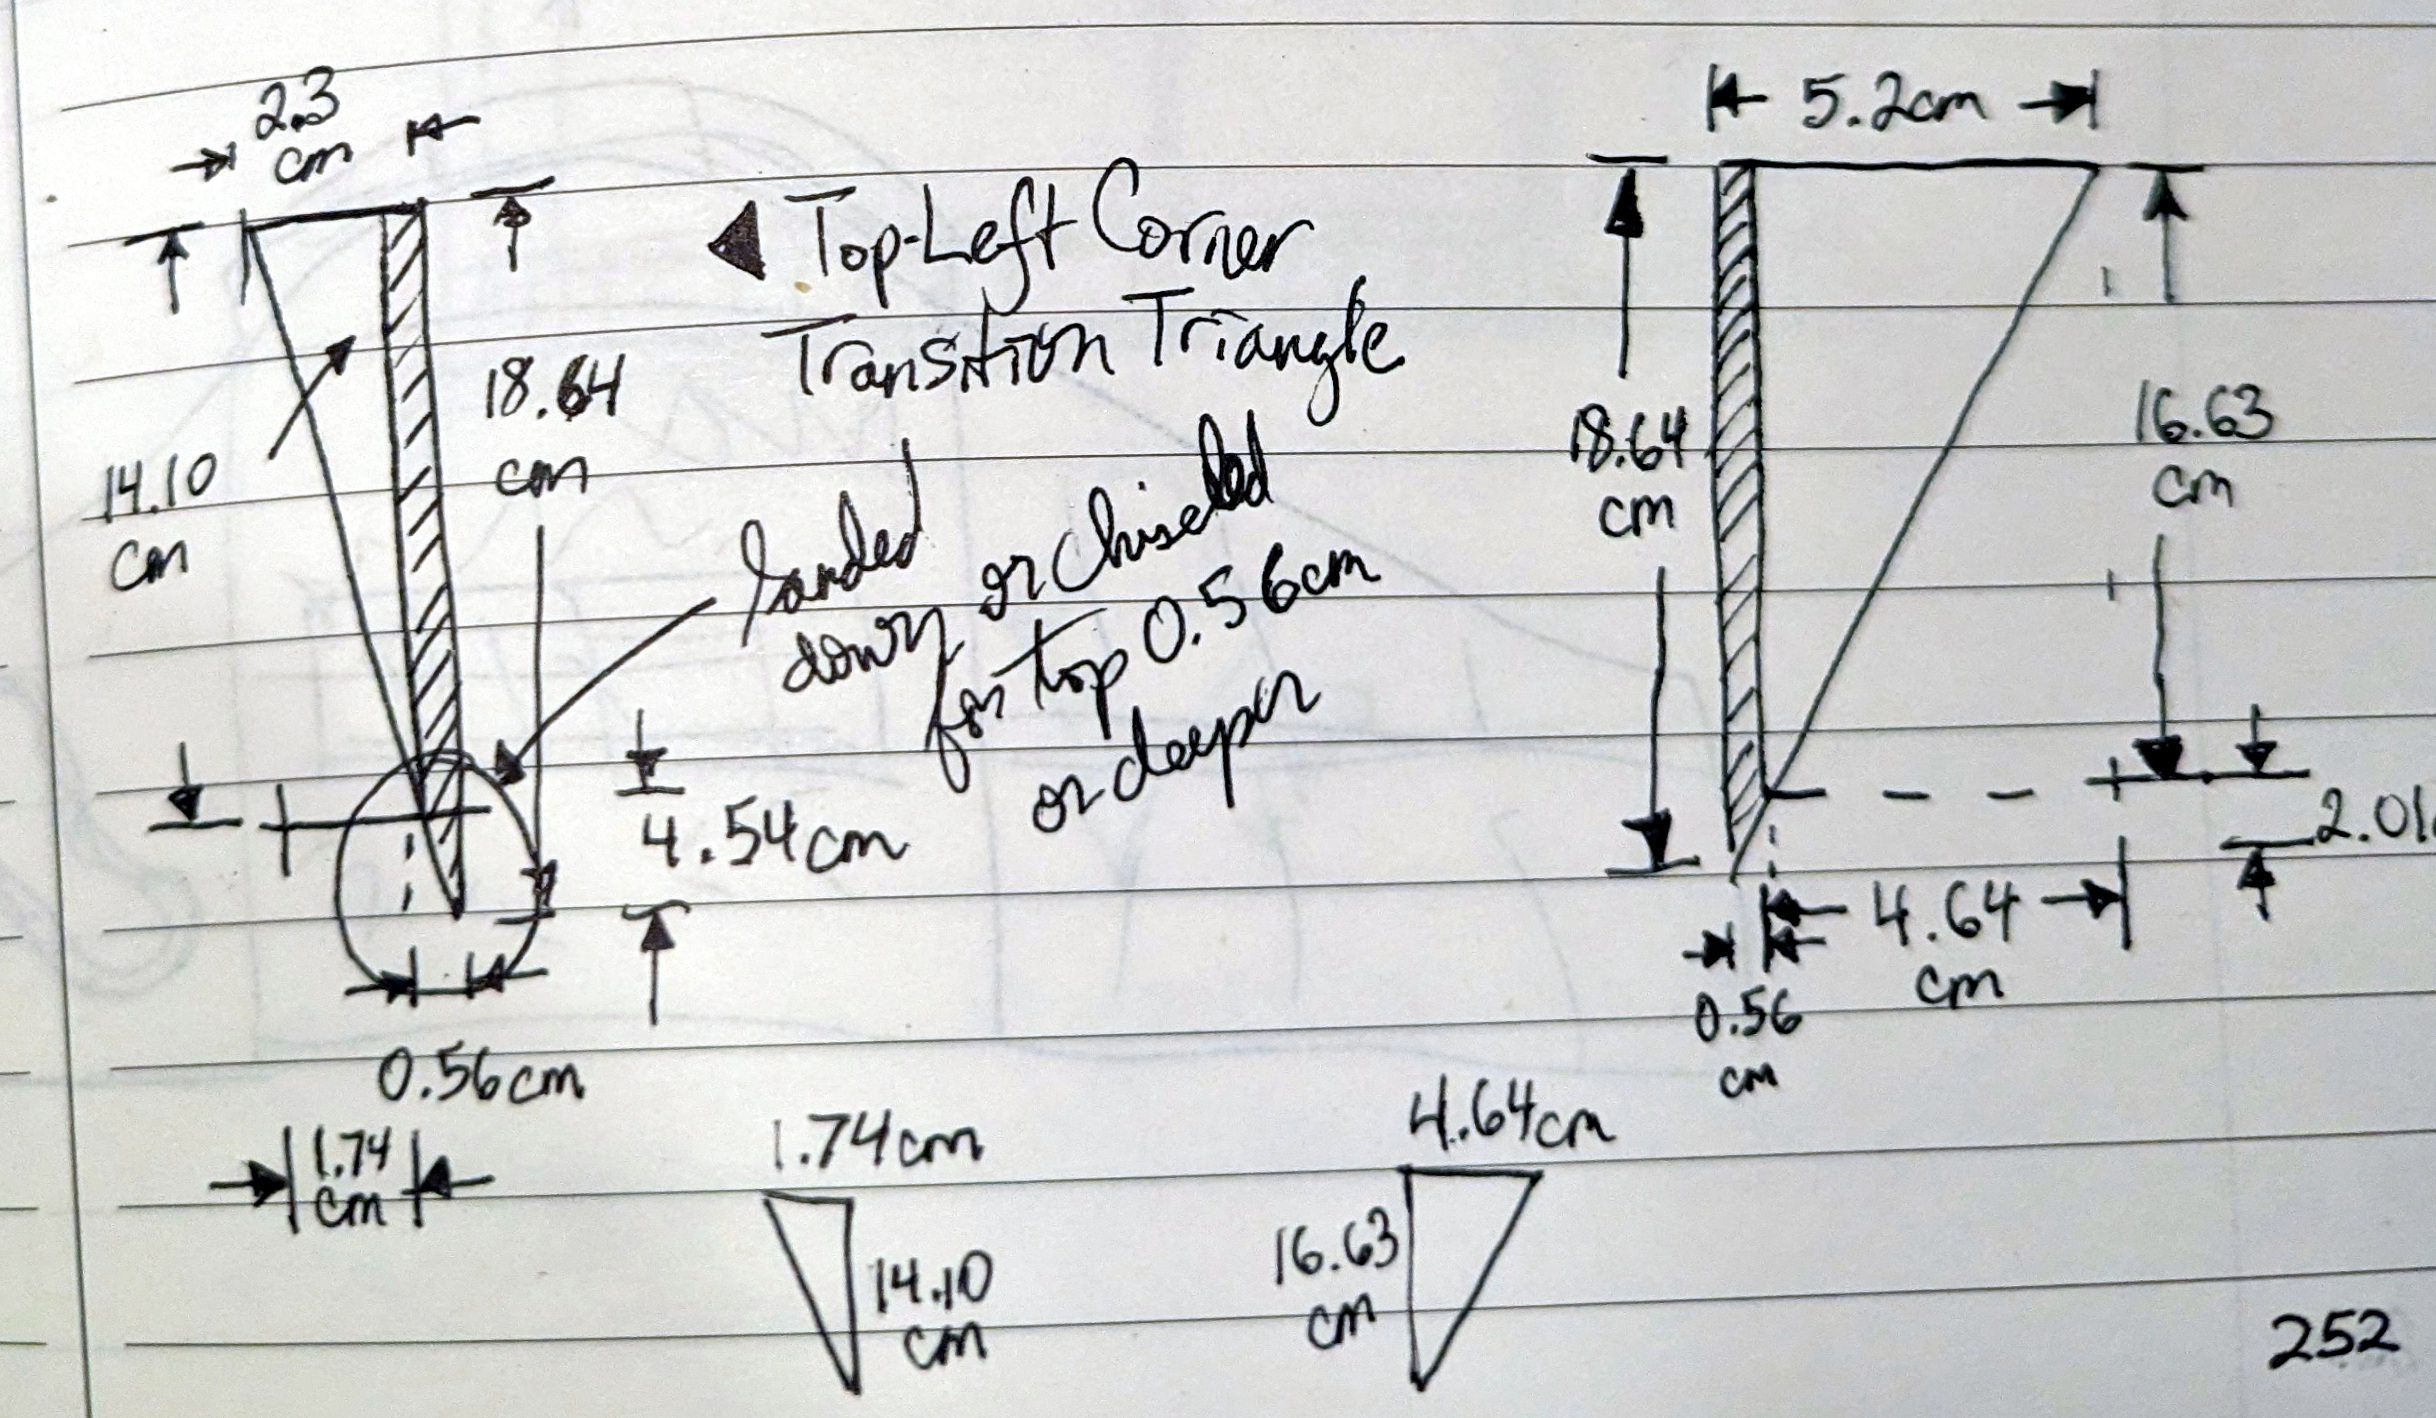 2.3
cm
Top-Left Corner
Transition Triangle
18.64
cm
14.10
cm
sanded
down or chiseled
for top 0.56cm
or deeper
4.54cm
0.56cm
1.74
cm
5.2cm
18.64
cm
16.63
cm
2.01
4.64
cm
0.56
cm
1.74cm
14.10
cm
4.64cm
16.63
cm
252